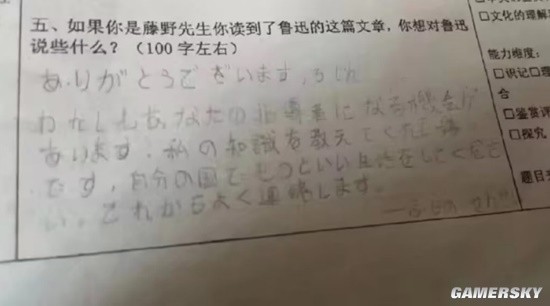 五、如果你是藤野先生你读到了鲁迅的这篇文章，你想对鲁迅
说些什么？（100字左右）
ありがとうございます，ろじん
わたしもあなたの指導者になる機会が
あります．私の知識を教えて
です，自分の国でもっといい生活をしてくださ
い。これからもよく連絡します。
——ふじの せんせい
□文化的理解
能力维度：
□识记□理
合
□鉴赏评
□探究
题目
GAMERSKY